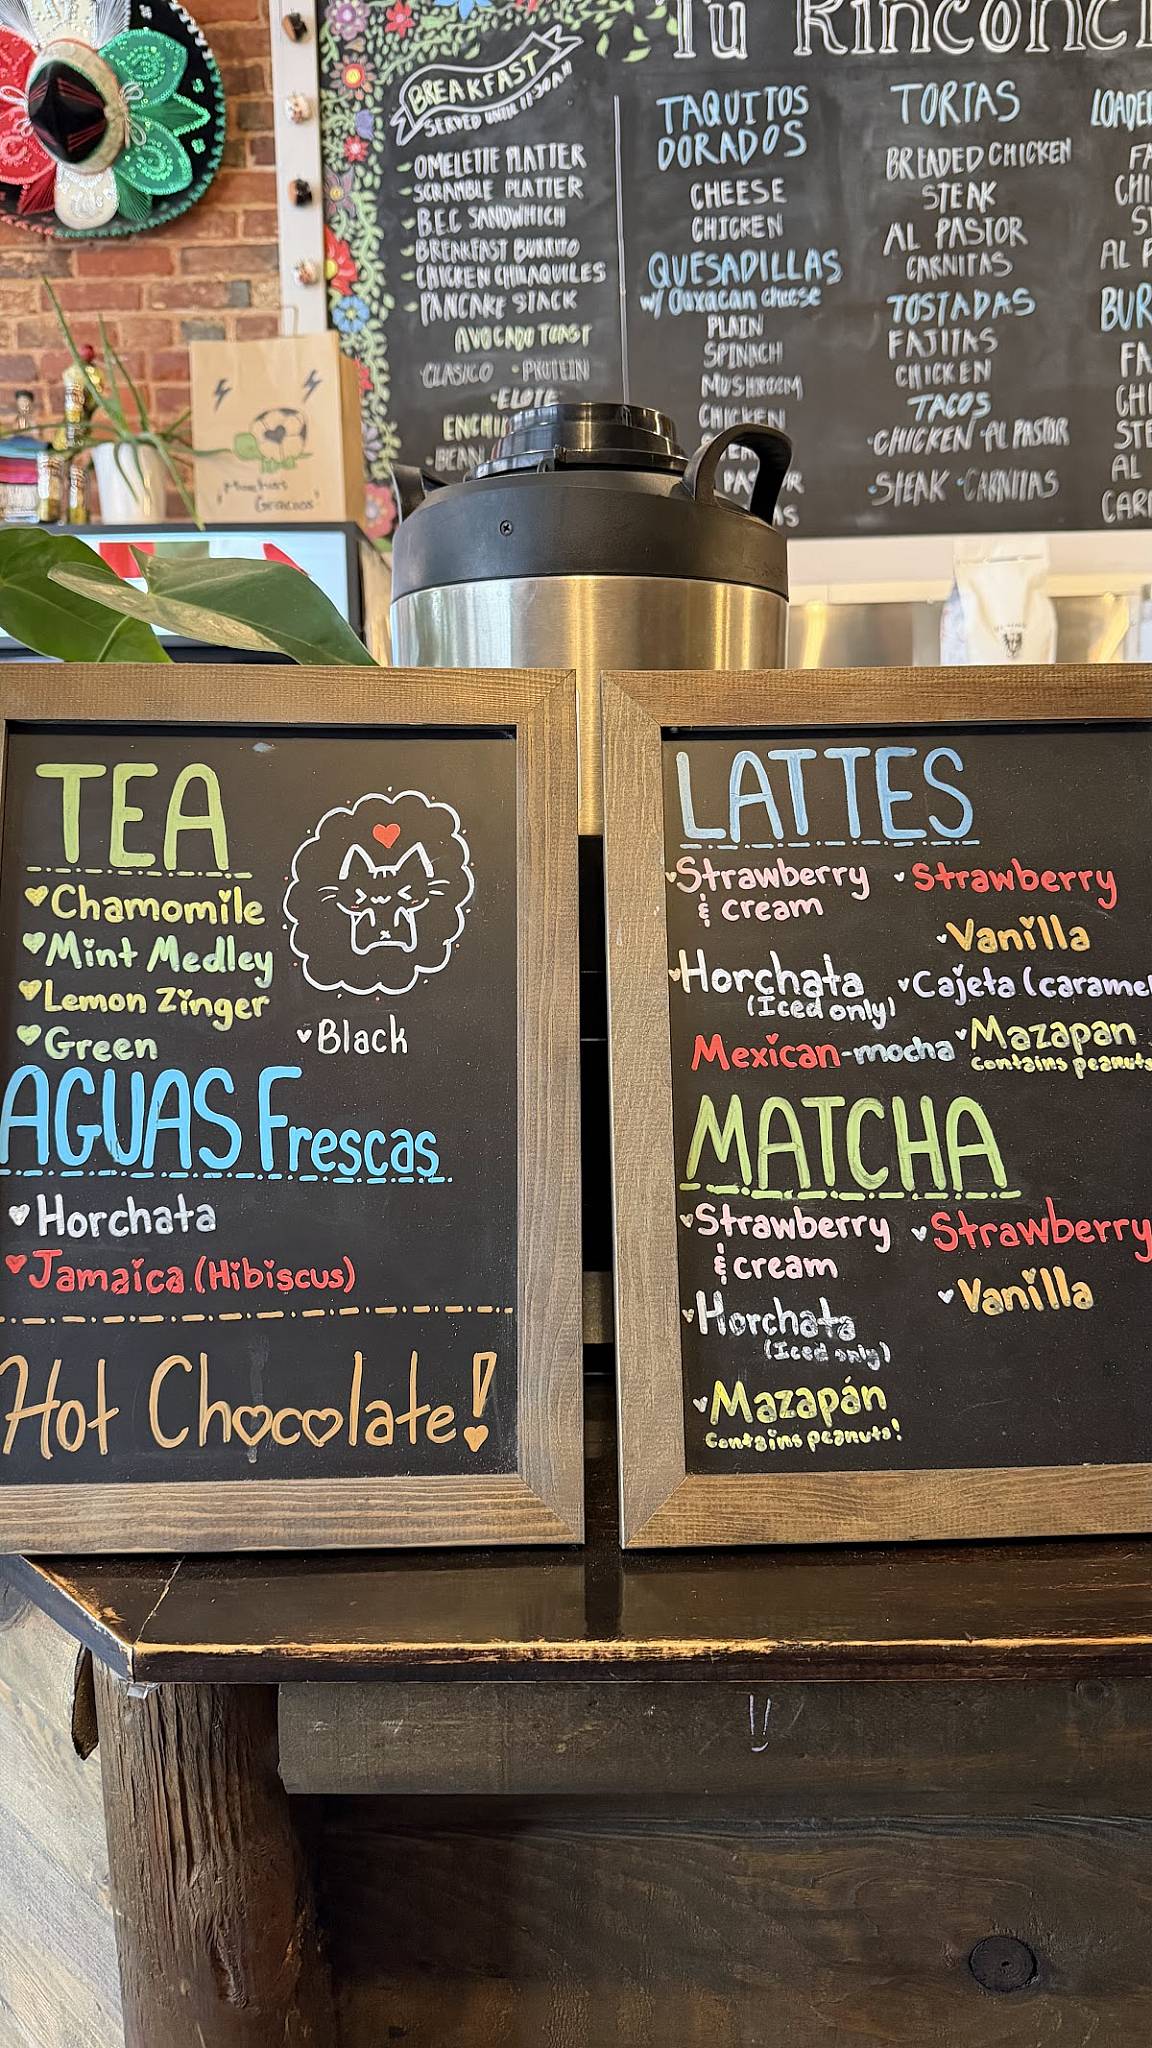 Tu Rinconci
BREAKFAST
SERVED UNTIL 11:30AM
OMELETTE PLATTER
SCRAMBLE PLATTER
B.E.C SANDWHICH
BREAKFAST BURRITO
CHICKEN CHILAQUILES
PANCAKE STACK
AVOCADO TOAST
CLASICO · PROTEIN
·ELOTE
ENCHI
·BEAN
TAQUITOS
DORADOS
CHEESE
CHICKEN
QUESADILLAS
w/ Oaxacan cheese
PLAIN
SPINACH
MUSHROOM
CHICKEN
TORTAS
BREADED CHICKEN
STEAK
AL PASTOR
CARNITAS
TOSTADAS
FAJITAS
CHICKEN
TACOS
·CHICKEN ·AL PASTOR
·STEAK ·CARNITAS
LOADE
FA
CHI
ST
AL P
BUR
FA
CHI
STE
AL
CAR
Muchas
Gracias
TEA
Chamomile
Mint Medley
Lemon Zinger
Green
Black
AGUAS Frescas
Horchata
Jamaica (Hibiscus)
Hot Chocolate!
LATTES
Strawberry
& cream
Strawberry
Vanilla
Horchata
(Iced only)
Cajeta (caramel
Mexican-mocha
Mazapan
contains peanuts
MATCHA
Strawberry
& cream
Strawberry
Vanilla
Horchata
(Iced only)
Mazapán
Contains peanuts!